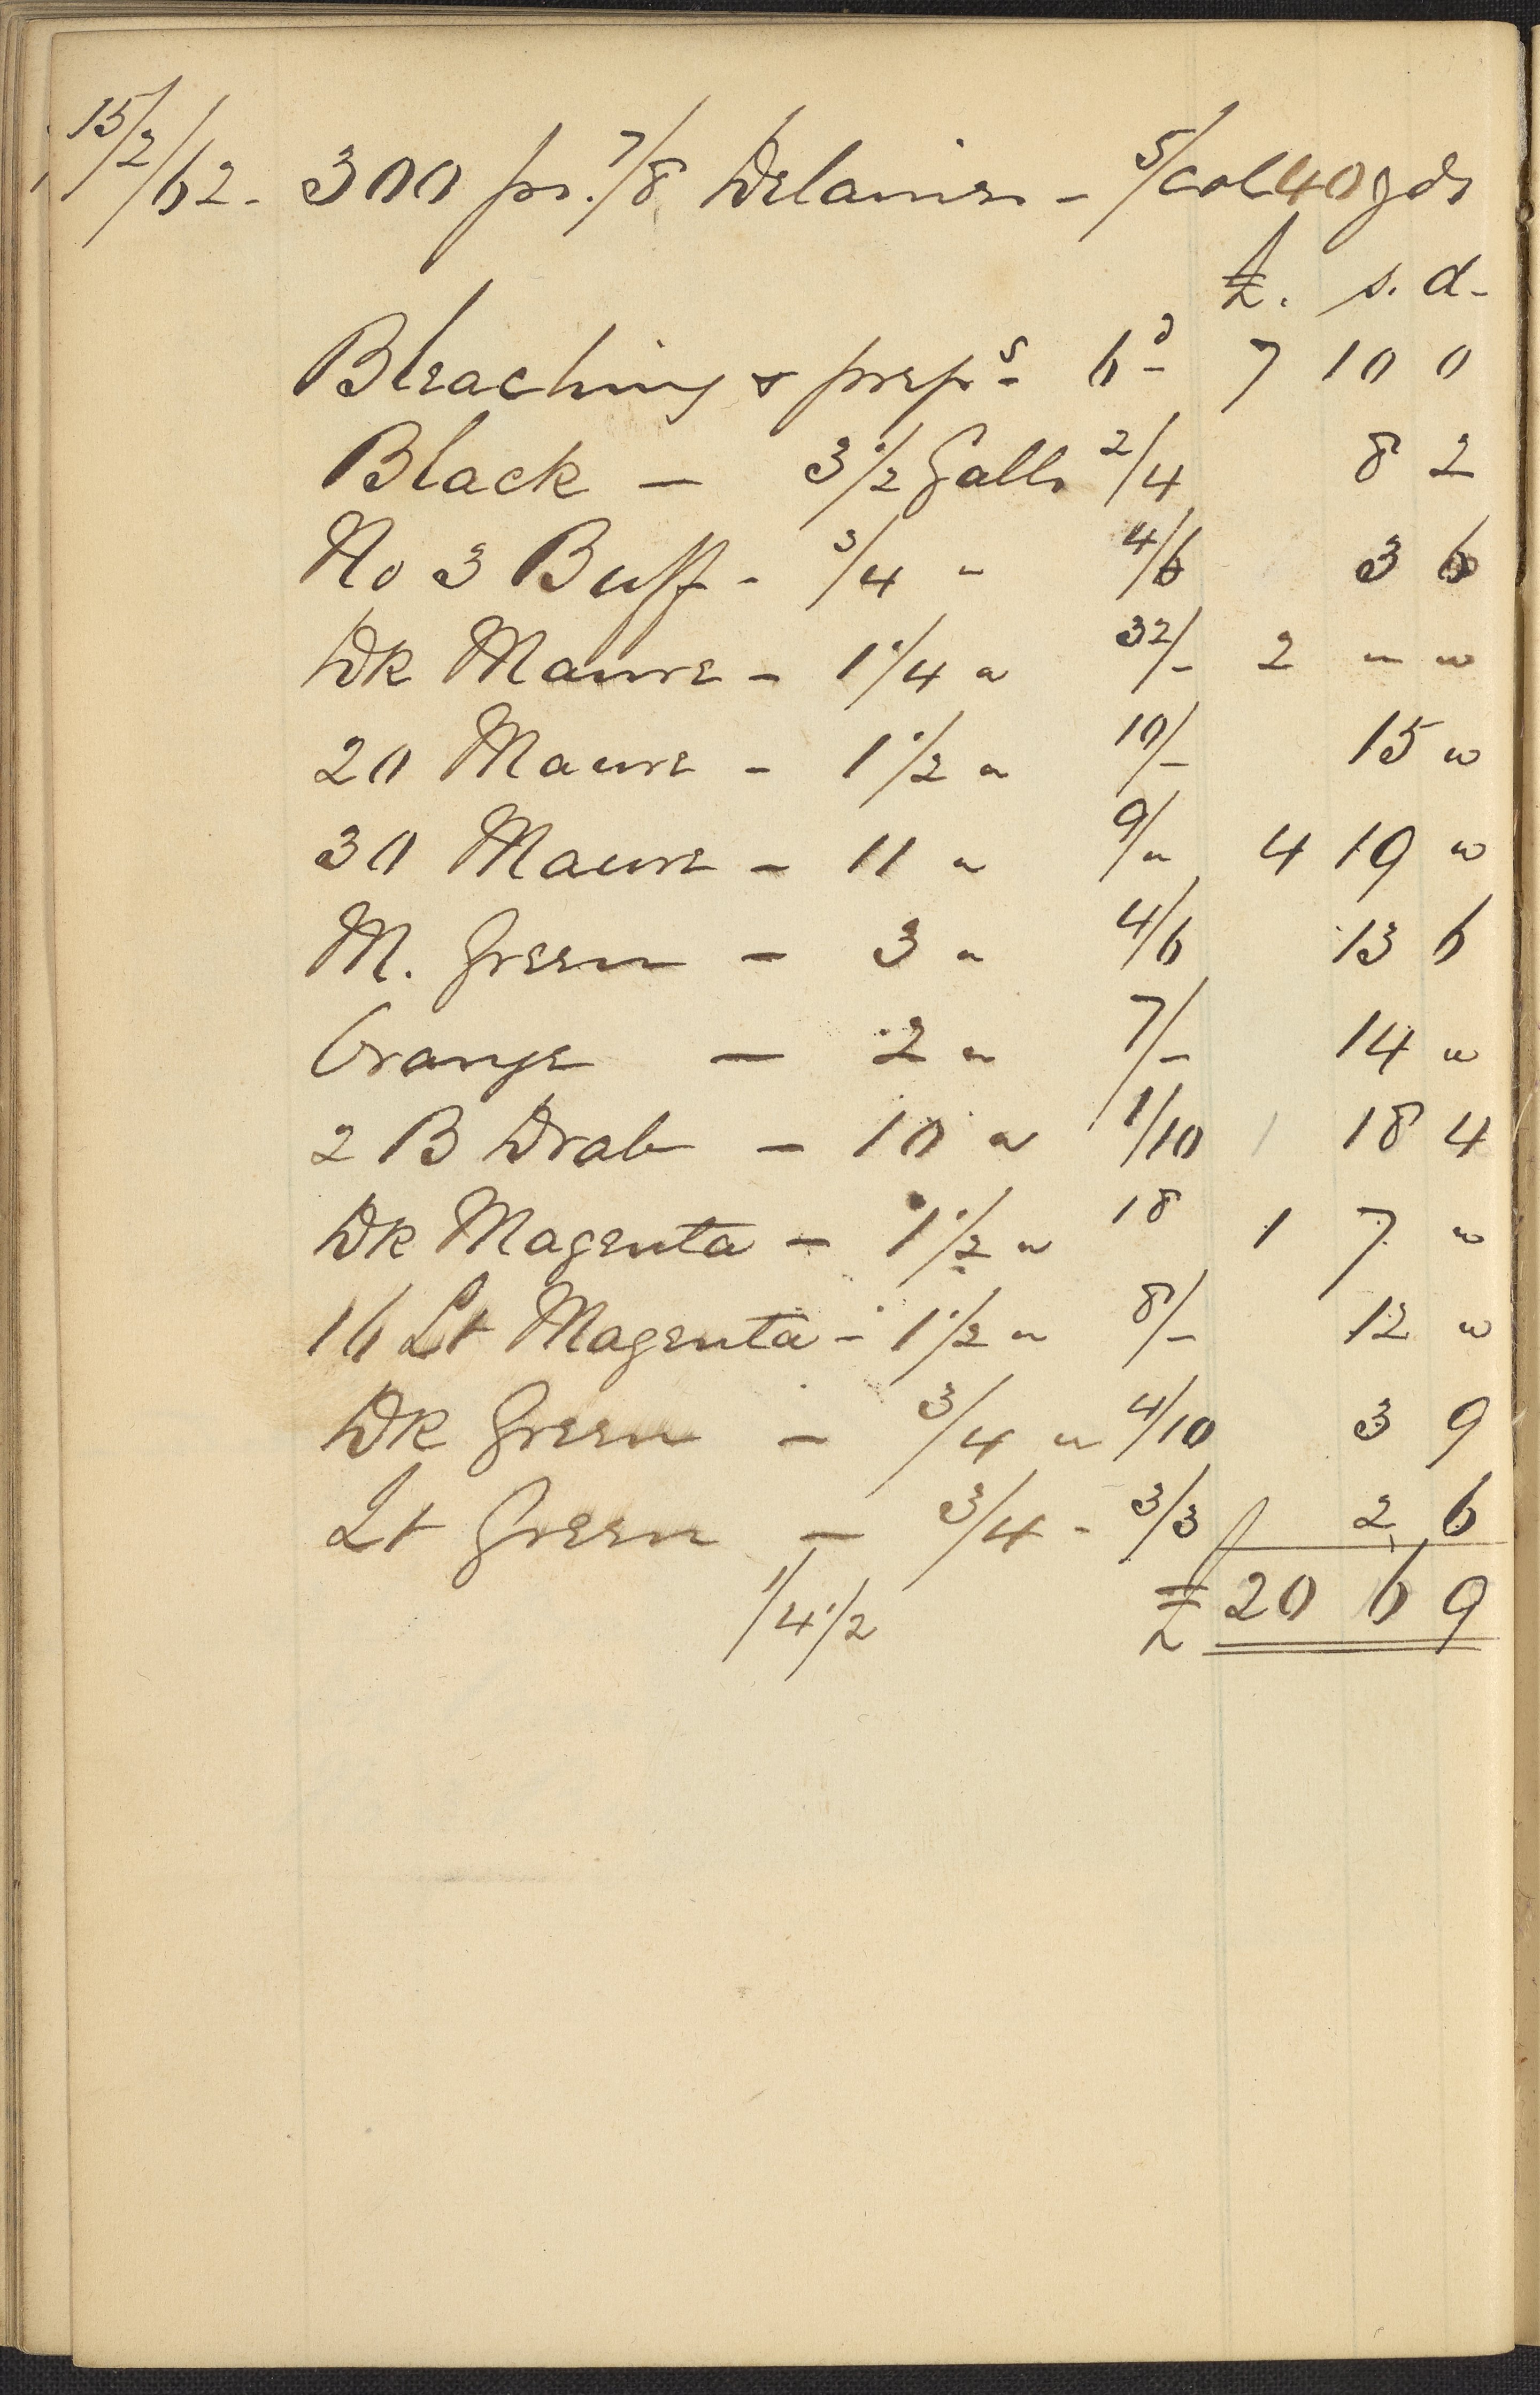 15/2/62 - 300 ps. 7/8 Delaines - 5/col 40 yds
£. s. d -
Bleaching & prepg 6d 7 10 0
Black - 3 1/2 Galls 2/4 8 2
No 3 Buff - 3/4 " 4/6 3 6
Dk Mauve - 1 1/4 " 32/- 2 " "
20 Mauve - 1 1/2 " 10/- 15 "
30 Mauve - 11 " 9/" 4 19 "
M. Green - 3 " 4/6 13 6
Orange - 2 " 7/- 14 "
2 B Drab - 10 " 1/10 18 4
Dk Magenta - 1 1/2 " 18 1 7 "
16 Lt Magenta - 1 1/2 " 8/- 12 "
Dk Green - 3/4 " 4/10 3 9
Lt Green - 3/4 - 3/3 2 6
1/4 1/2 £ 20 6 9